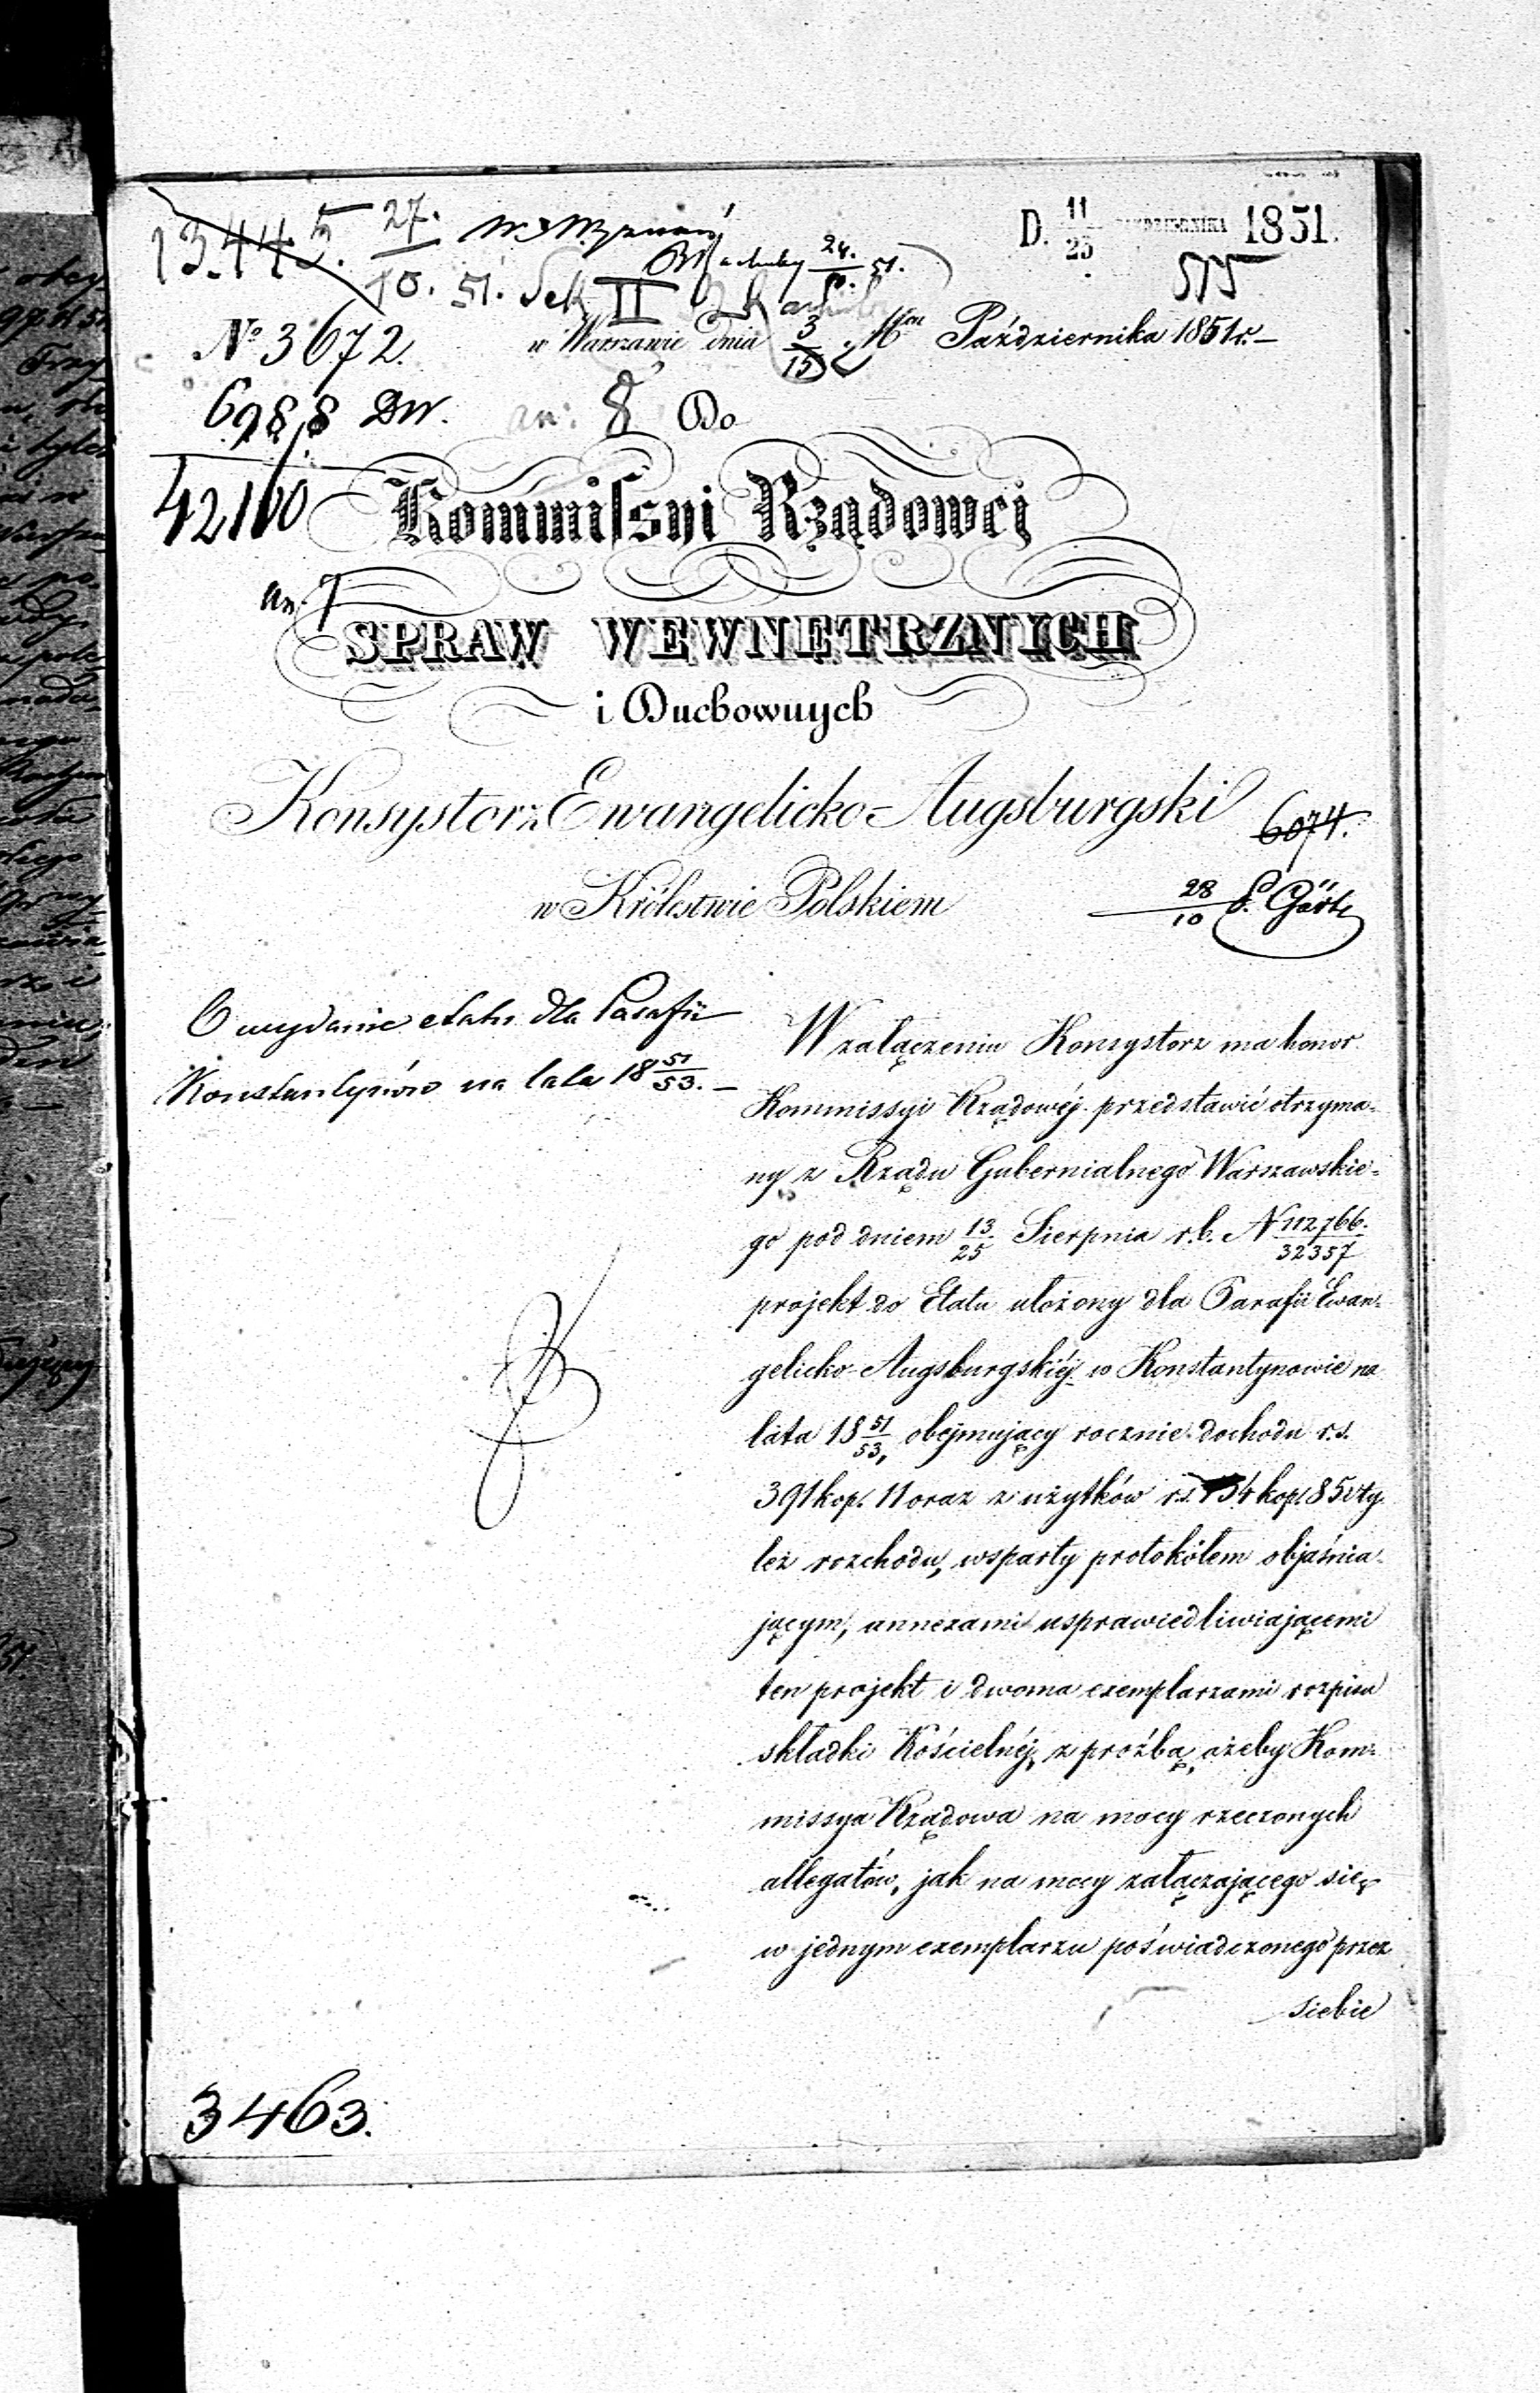 13445. 27./10. 51. Sek II
D. 11/23 PAŹDZIERNIKA 1851.
515
24./10. 51.
№ 3672. w Warszawie dnia 3/15 Mca Października 1851 r.—
6988 DW. an: 8 Do
42160
Kommissyi Rządowej
an. 7
SPRAW WEWNĘTRZNYCH
i Duchownych
Konsystorz Ewangelicko-Augsburgski
6074.
w Królestwie Polskiem
28/10
O wydanie etatu dla Parafii
Konstantynów na lata 18 51/53.—
W załączeniu Konsystorz ma honor
Kommissyi Rządowéj przedstawić otrzyma-
ny z Rządu Gubernialnego Warszawskie-
go pod dniem 13/25 Sierpnia r.b. N 112766./32357
projekt do Etatu ułożony dla Parafii Ewan-
gelicko-Augsburgskiéj w Konstantynowie na
lata 18 51/53, obejmujący rocznie dochodu r.s.
391 kop. 11 oraz z użytków r.s. 154 kop. 85 i ty-
leż rozchodu, wsparty protokółem objaśnia-
jącym, annexami usprawiedliwiającemi
ten projekt i dwoma exemplarzami rozpisu
składki Kościelnéj, z prośbą, ażeby Kom-
missya Rządowa na mocy rzeczonych
allegatów, jak na mocy załączającego się
w jednym exemplarzu poświadczonego przez
siebie
3463.